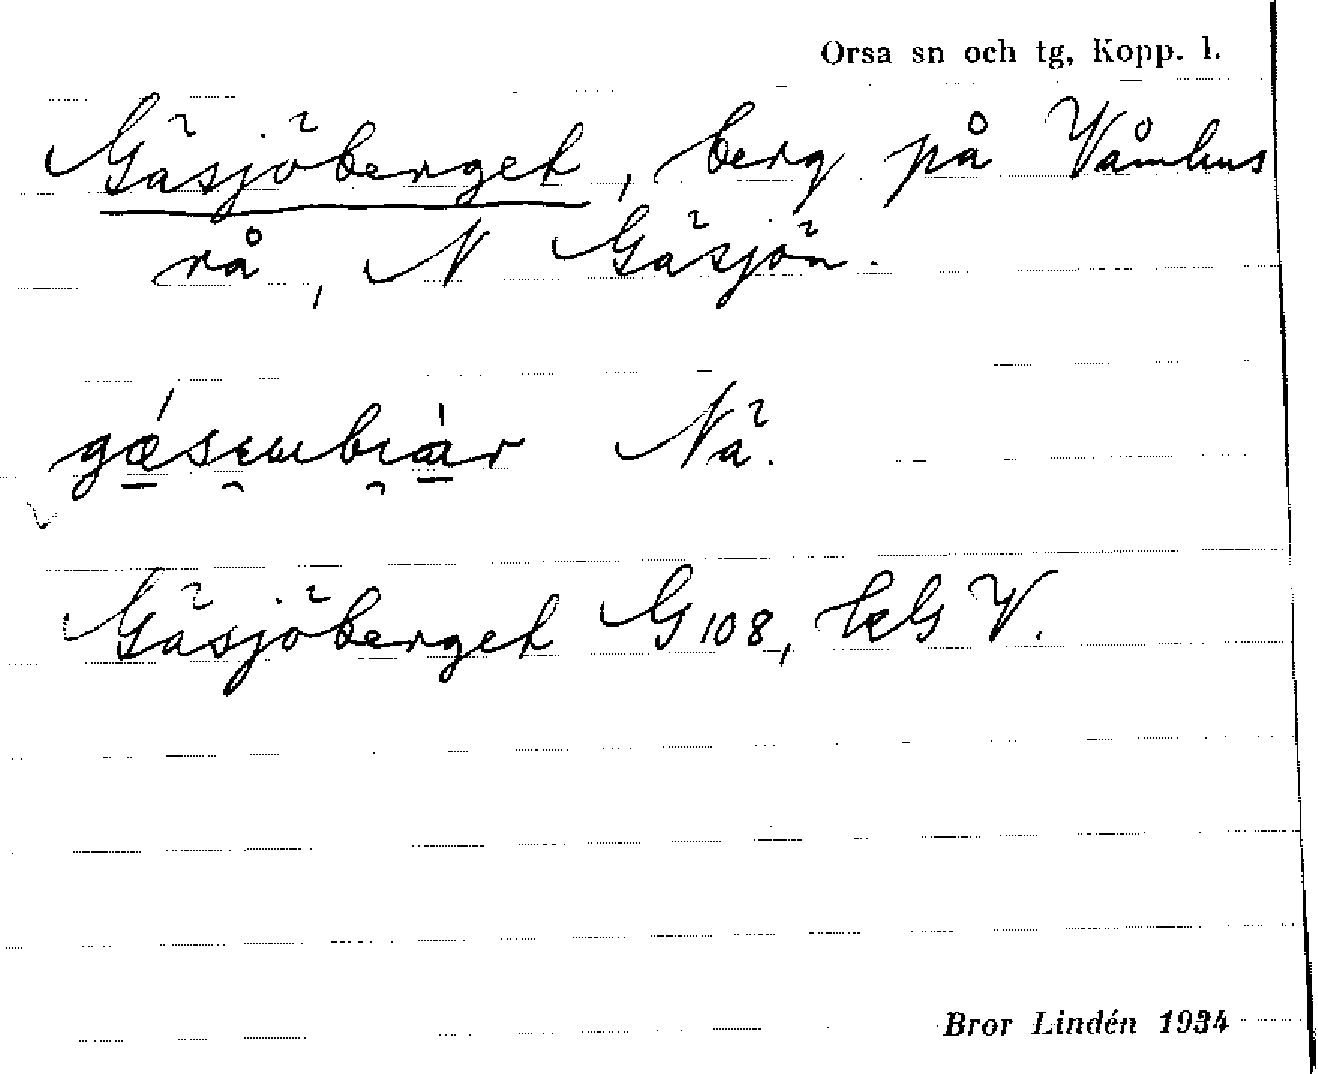 Orsa sn och tg, Kopp. l.
Gäsjöberget, berg på Våmhus
rå, N Gäsjön.
Nä.
Gäsjöberget G 108, kG V.
Bror Lindén 1934